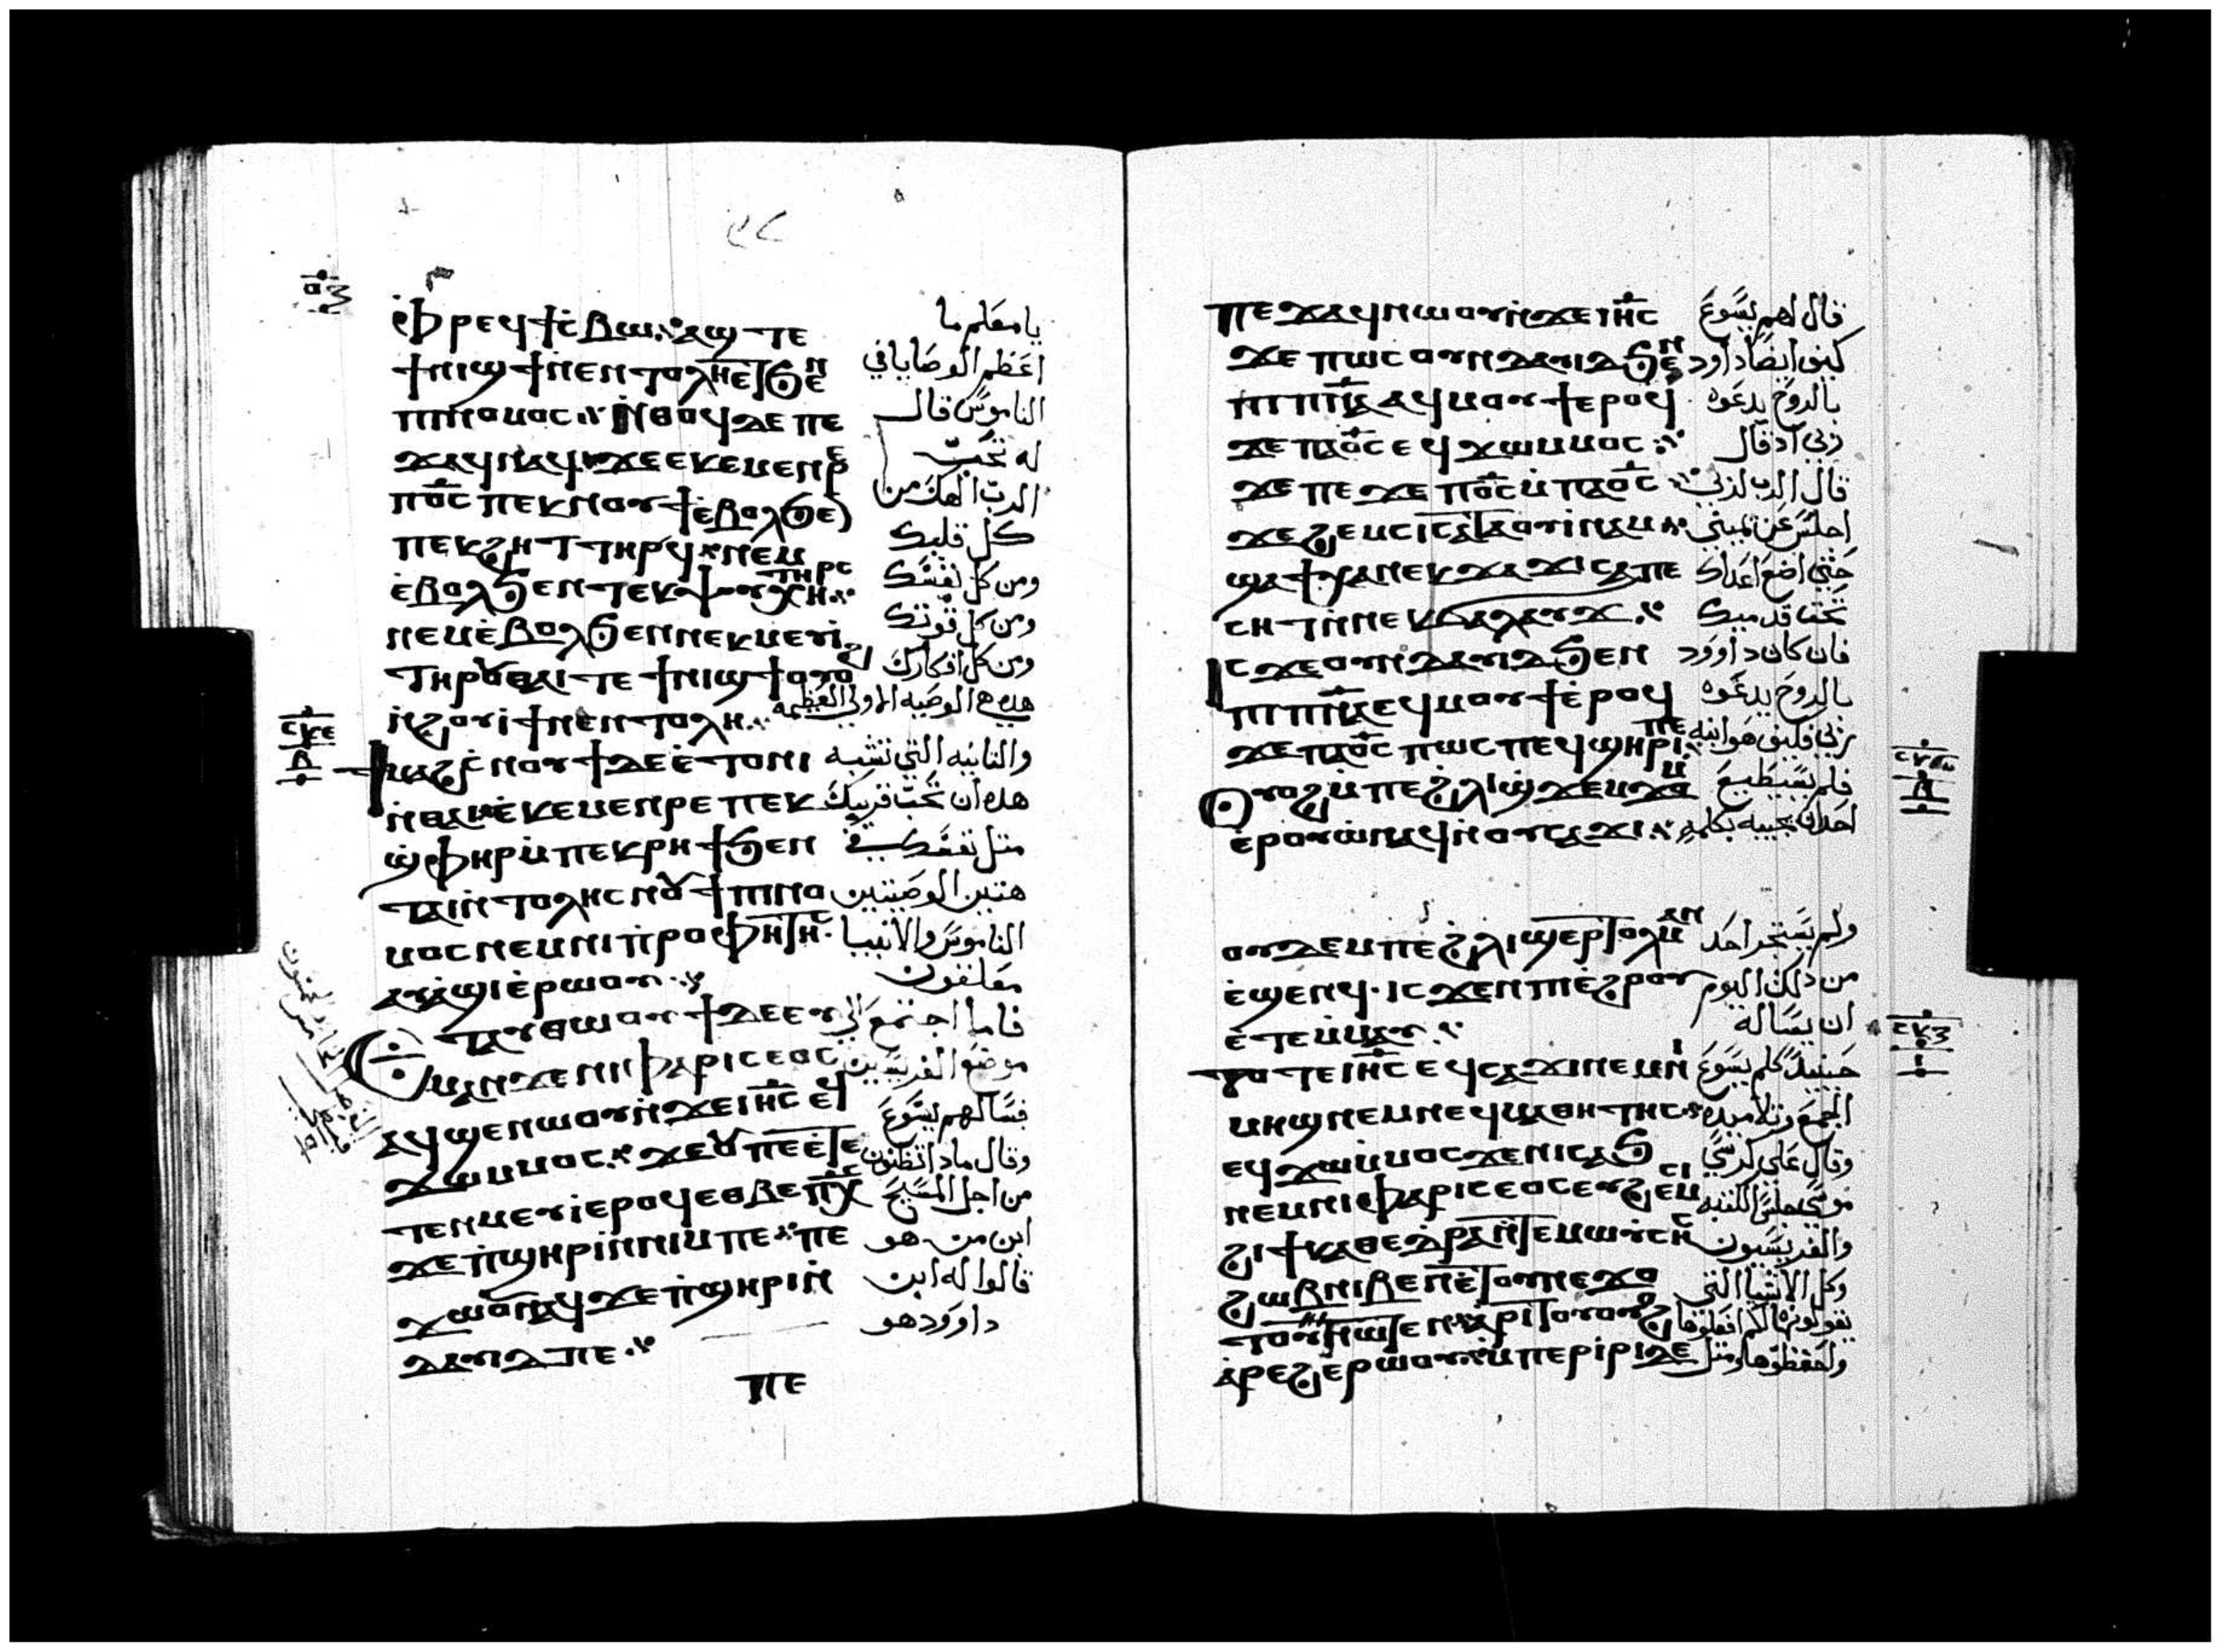 ⲟ̅ⲍ̅
ⲫⲣⲉϥϯⲥⲃⲱ ⲁϣ ⲧⲉ يا معلم ما
ϯⲛⲓϣϯ ⲛⲉⲛⲧⲟⲗⲏ ⲉⲧϧⲉⲛ اعظم الوصايا في
ⲡⲓⲛⲟⲙⲟⲥ ⲛⲑⲟϥ ⲇⲉ ⲡⲉ الناموس قال
ϫⲁϥ ⲛⲁϥ ϫⲉ ⲉⲕⲉⲙⲉⲛⲣⲉ له تحب
ⲡ⳪ ⲡⲉⲕⲛⲟⲩϯ ⲉⲃⲟⲗ ϧⲉⲛ الرب الهك من
ⲡⲉⲕϩⲏⲧ ⲧⲏⲣϥ ⲛⲉⲙ كل قلبك
ⲉⲃⲟⲗ ϧⲉⲛ ⲧⲉⲕⲯⲩⲭⲏ ⲧⲏⲣⲥ ومن كل نفسك
ⲛⲉⲙ ⲉⲃⲟⲗ ϧⲉⲛ ⲛⲉⲕⲙⲉⲩⲓ ومن كل قوتك
ⲧⲏⲣⲟⲩ ⲑⲁⲓ ⲧⲉ ϯⲛⲓϣϯ ⲟⲩⲟϩ ومن كل افكارك
ⲛϩⲟⲩⲓϯ ⲛⲉⲛⲧⲟⲗⲏ هده هي الوصيه الاولي العظيمه
ⲥⲕⲉ ϯⲙⲁϩⲥⲛⲟⲩϯ ⲇⲉ ⲉⲧⲟⲛⲓ والثانيه التي تشبه
ⲛⲑⲁⲓ ⲉⲕⲉⲙⲉⲛⲣⲉ ⲡⲉⲕ هده ان تحب قريبك
ϣⲫⲏⲣ ⲙⲡⲉⲕⲣⲏϯ ϧⲉⲛ مثل نفسك في
ⲧⲁⲓ ⲛⲧⲟⲗⲏ ⲥⲛⲟⲩϯ ⲡⲓⲛⲟ هتين الوصيتين
ⲙⲟⲥ ⲛⲉⲙ ⲛⲓⲡⲣⲟⲫⲏⲧⲏⲥ الناموس والانبيا
ⲁⲩⲁϣⲓ ⲉⲣⲱⲟⲩ معلقون
ⲉⲧⲁⲩⲑⲱⲟⲩϯ ⲇⲉ ⲉⲩ فاما اجتمع الي
ⲙⲁ ⲛϫⲉ ⲛⲓⲫⲁⲣⲓⲥⲉⲟⲥ موضع الفريسيين
ⲁϥϣⲉⲛⲱⲟⲩ ⲛϫⲉ ⲓⲏⲥ ⲉϥ فسالهم يسوع
ϫⲱ ⲙⲙⲟⲥ ϫⲉ ⲟⲩ ⲡⲉⲧⲉ وقال مادا تظنون
ⲧⲉⲛⲙⲉⲩⲓ ⲉⲣⲟϥ ⲉⲑⲃⲉ ⲡⲭⲥ من اجل المسيح
ϫⲉ ⲡϣⲏⲣⲓ ⲛⲛⲓⲙ ⲡⲉ ⲡⲉ ابن من هو
ϫⲱⲟⲩ ⲛⲁϥ ϫⲉ ⲡϣⲏⲣⲓ ⲛ قالوا له ابن
ⲇⲁⲩⲓⲇ ⲡⲉ داوود هو
ⲡⲉ
ⲡⲉϫⲁϥ ⲛⲱⲟⲩ ⲛϫⲉ ⲓⲏⲥ قال لهم يسوع
ϫⲉ ⲡⲱⲥ ⲟⲩⲛ ⲇⲁⲩⲓⲇ ϧⲉⲛ كيف ايضا داود
ⲡⲓⲡⲛⲁ ⲁϥⲙⲟⲩϯ ⲉⲣⲟϥ بالروح يدعوه
ϫⲉ ⲡⲁ⳪ ⲉϥϫⲱ ⲙⲙⲟⲥ ربي اد قال
ϫⲉ ⲡⲉϫⲉ ⲡ⳪ ⲙⲡⲁ⳪ قال الرب لربي
ϫⲉ ϩⲉⲙⲥⲓ ⲥⲁⲧⲁⲟⲩⲓⲛⲁⲙ اجلس عن يميني
ϣⲁϯⲭⲁ ⲛⲉⲕϫⲁϫⲓ ⲥⲁⲡⲉ حتي اضع اعداك
ⲥⲏⲧ ⲛⲛⲉⲕϭⲁⲗⲁⲩϫ تحت قدميك
ⲓⲥϫⲉ ⲟⲩⲛ ⲇⲁⲩⲓⲇ ϧⲉⲛ فان كان داوود
ⲡⲓⲡⲛⲁ ⲉϥⲙⲟⲩϯ ⲉⲣⲟϥ بالروح يدعوه
ϫⲉ ⲡⲁ⳪ ⲡⲱⲥ ⲡⲉϥϣⲏⲣⲓ ⲡⲉ ربي فكيف هو ابنه
ⲟⲩⲟϩ ⲙⲡⲉ ϩⲗⲓ ϣϫⲉⲙϫⲟⲙ فلم يستطيع
ⲉⲣⲟⲩⲱ ⲛⲁϥ ⲛⲟⲩⲥⲁϫⲓ احد ان يجيبه بكلمه
ⲟⲩⲇⲉ ⲙⲡⲉ ϩⲗⲓ ⲉⲣⲧⲟⲗⲙⲁⲛ ولم يستجر احد
ⲉϣⲉⲛϥ ⲓⲥϫⲉⲛ ⲡⲓⲉϩⲟⲟⲩ من دلك اليوم
ⲉⲧⲉⲙⲙⲁⲩ ان يساله
ⲧⲟⲧⲉ ⲓⲏⲥ ⲉϥⲥⲁϫⲓ ⲛⲉⲙ ⲛⲓ حينيد كلم يسوع ⲥⲕⲍ
ⲙⲏϣ ⲛⲉⲙ ⲛⲉϥⲙⲁⲑⲏⲧⲏⲥ الجمع وتلاميده
ⲉϥϫⲱ ⲙⲙⲟⲥ ϫⲉ ⲛⲓⲥⲁϧ وقال علي كرسي
ⲛⲉⲙ ⲛⲓⲫⲁⲣⲓⲥⲉⲟⲥ ⲉⲩϩⲉⲙⲥⲓ موسي جلس الكتبه
ϩⲓ ϯⲕⲁⲑⲉⲇⲣⲁ ⲛⲧⲉ ⲙⲱⲩⲥⲏⲥ والفريسيون
ϩⲱⲃ ⲛⲓⲃⲉⲛ ⲉⲧⲟⲩⲛⲉϫⲟ وكل الاشيا التي
ⲧⲟⲩ ⲛⲱⲧⲉⲛ ⲁⲣⲓⲧⲟⲩ ⲟⲩⲟϩ يقولونها لكم افعلوها
ⲁⲣⲉϩ ⲉⲣⲱⲟⲩ ⲙⲡⲉⲣⲓⲣⲓ ⲇⲉ واحفظوها ومثل